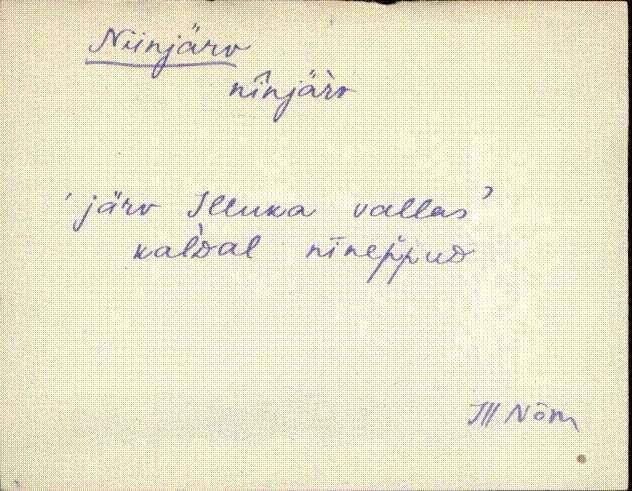 Niinjärv
nīnjä̀rv
'järv Illuka vallas'
kalˋdal nīnep̆pud
Ill Nõm